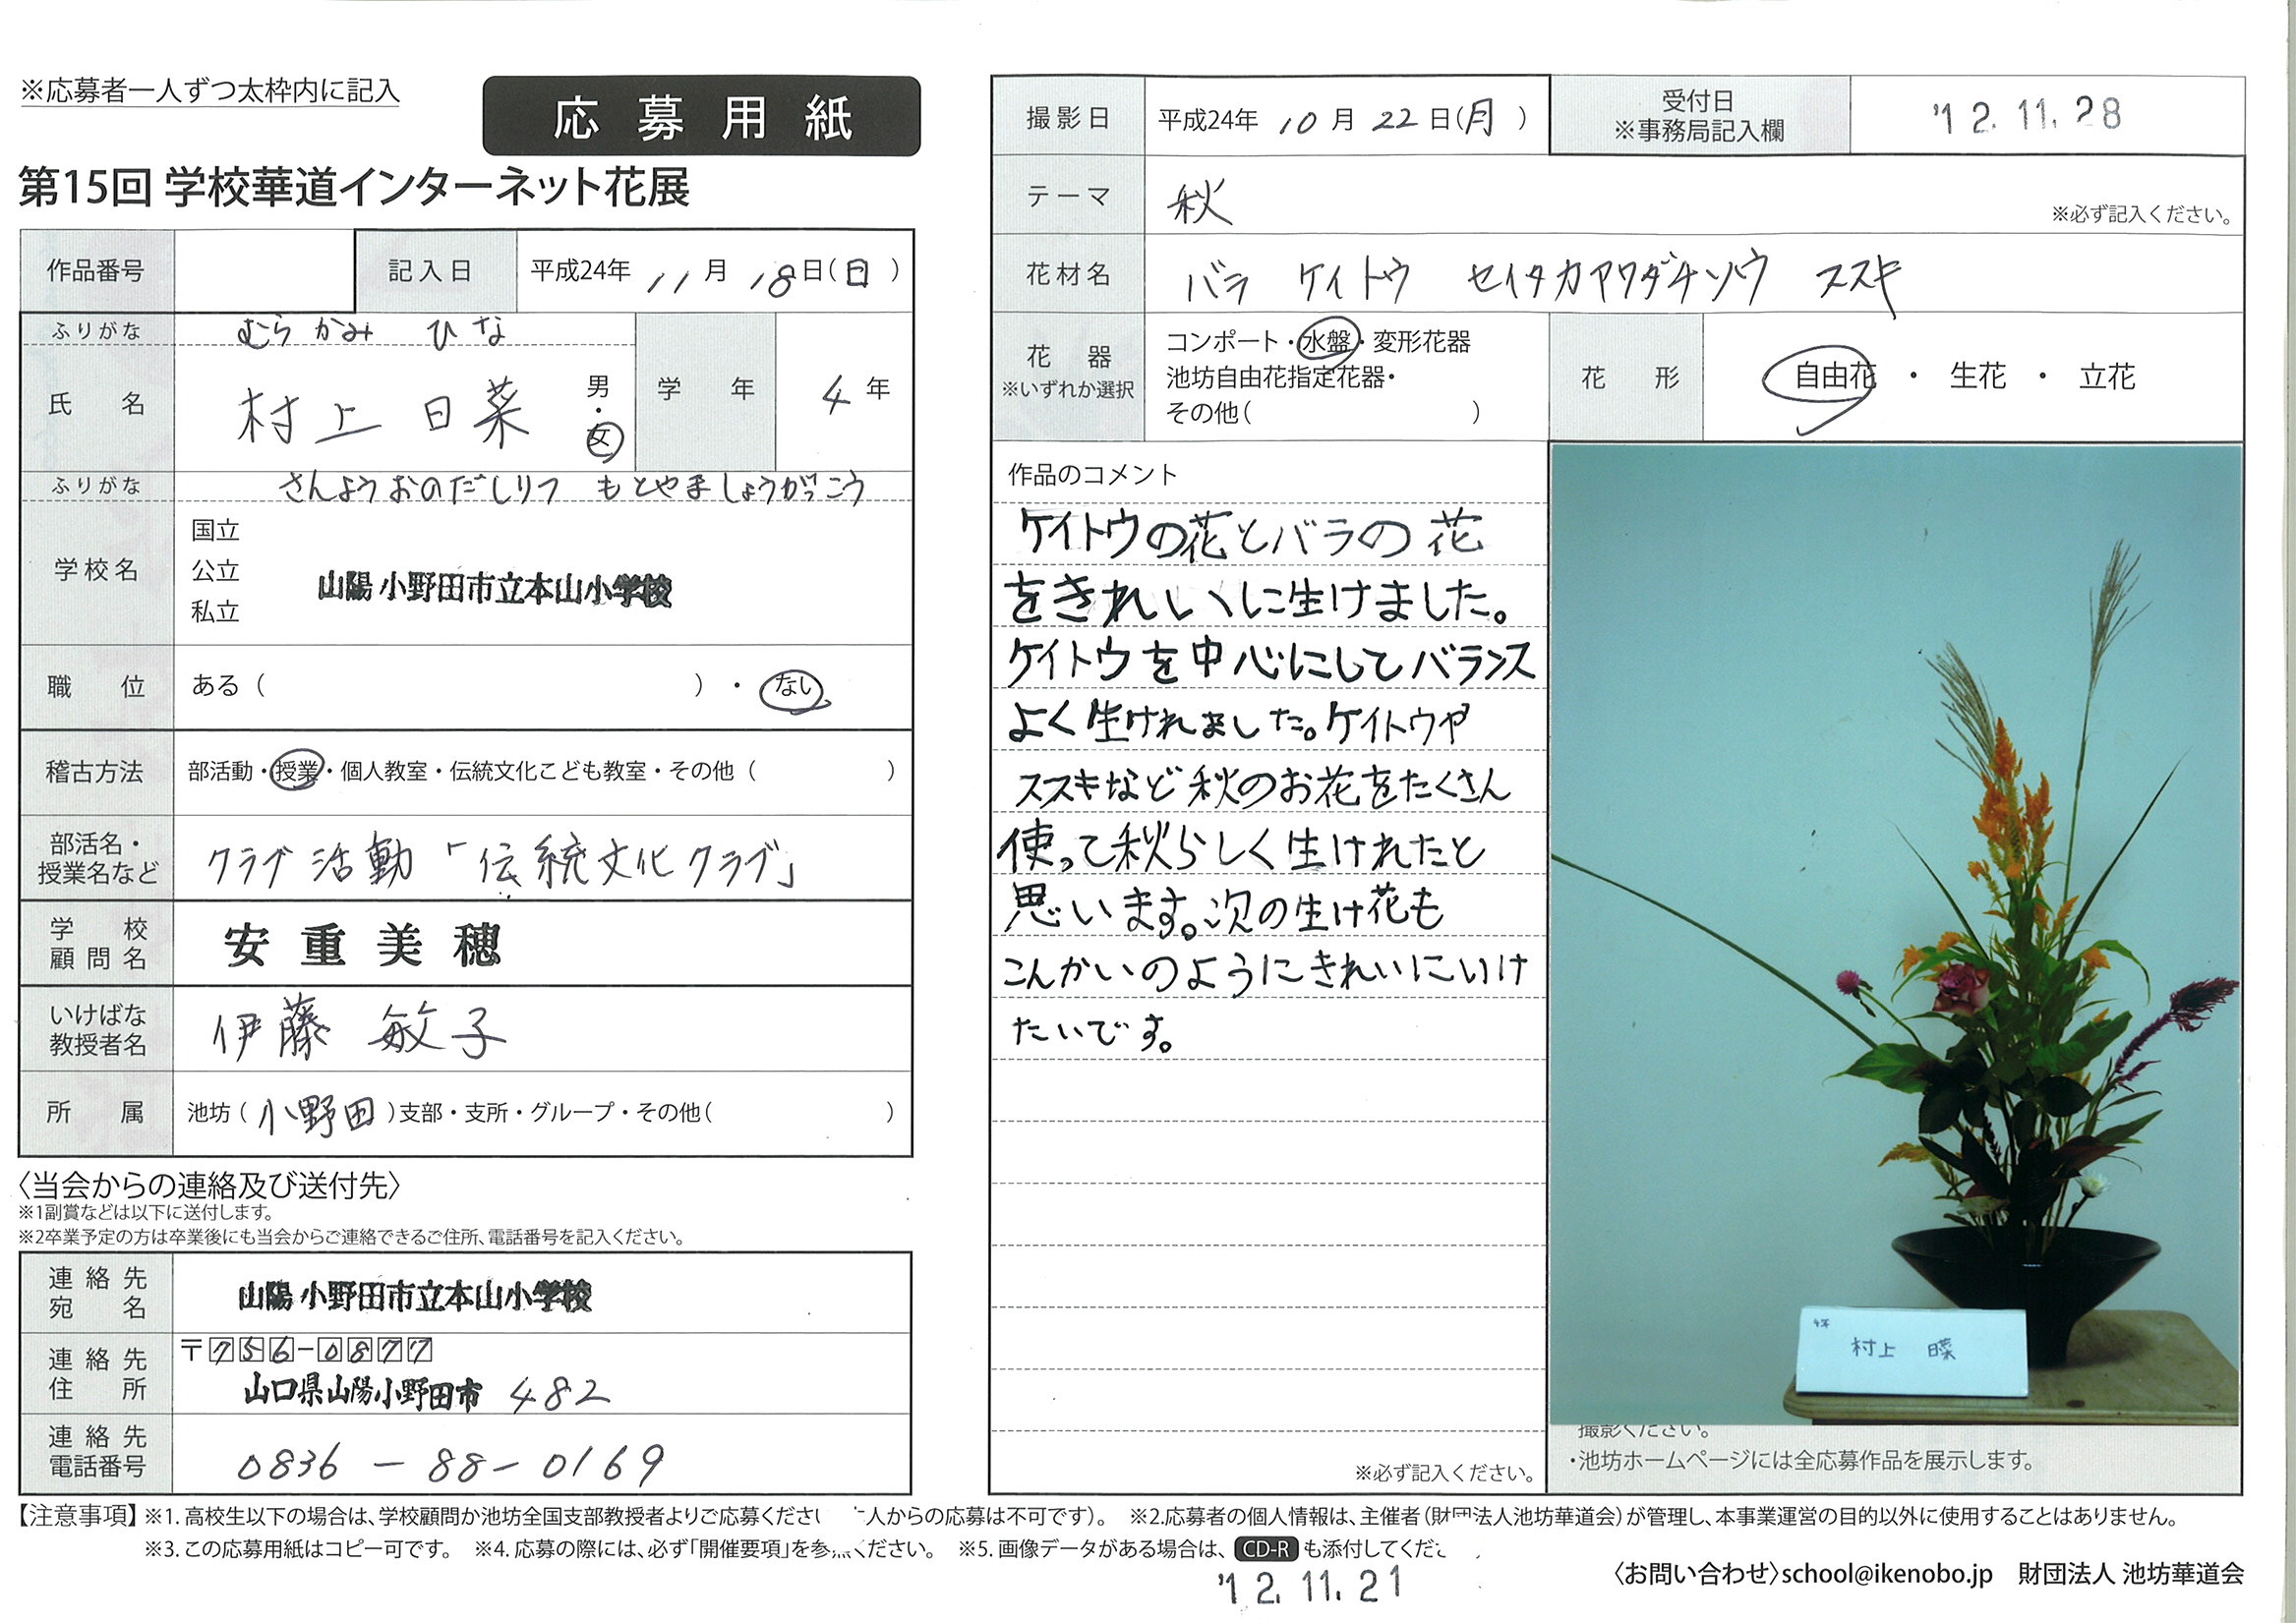 ※応募者一人ずつ太枠内に記入
応募用紙
第15回 学校華道インターネット花展
作品番号
記入日 平成24年 11月 18日(日)
ふりがな むらかみ ひな
氏名 村上 日菜 男・女
学年 4年
ふりがな さんようおのだしりつ もとやましょうがっこう
学校名 国立
公立 山陽小野田市立本山小学校
私立
職位 ある( )・ない
稽古方法 部活動・授業・個人教室・伝統文化こども教室・その他( )
部活名・
授業名など クラブ活動「伝統文化クラブ」
学校
顧問名 安重美穂
いけばな
教授者名 伊藤 敏子
所属 池坊(小野田)支部・支所・グループ・その他( )
〈当会からの連絡及び送付先〉
※1副賞などは以下に送付します。
※2卒業予定の方は卒業後にも当会からご連絡できるご住所、電話番号を記入ください。
連絡先
宛名 山陽小野田市立本山小学校
連絡先
住所 〒756-0877
山口県山陽小野田市 482
連絡先
電話番号 0836-88-0169
撮影日 平成24年 10月 22日(月)
受付日
※事務局記入欄 '12.11.28
テーマ 秋 ※必ず記入ください。
花材名 バラ ケイトウ セイタカアワダチソウ ススキ
花器
※いずれか選択
コンポート・水盤・変形花器
池坊自由花指定花器・
その他( )
花形 自由花・生花・立花
作品のコメント
ケイトウの花とバラの花
をきれいに生けました。
ケイトウを中心にしてバランス
よく生けれました。ケイトウや
ススキなど秋のお花をたくさん
使って秋らしく生けれたと
思います。次の生け花も
こんかいのようにきれいにいけ
たいです。
※必ず記入ください。
4年
村上 日菜
撮影ください。
・池坊ホームページには全応募作品を展示します。
【注意事項】※1.高校生以下の場合は、学校顧問か池坊全国支部教授者よりご応募くださ 人からの応募は不可です)。 ※2.応募者の個人情報は、主催者(財団法人池坊華道会)が管理し、本事業運営の目的以外に使用することはありません。
※3.この応募用紙はコピー可です。 ※4.応募の際には、必ず「開催要項」を参照ください。 ※5.画像データがある場合は、CD-Rも添付してくだ
'12.11.21
〈お問い合わせ〉school@ikenobo.jp 財団法人 池坊華道会